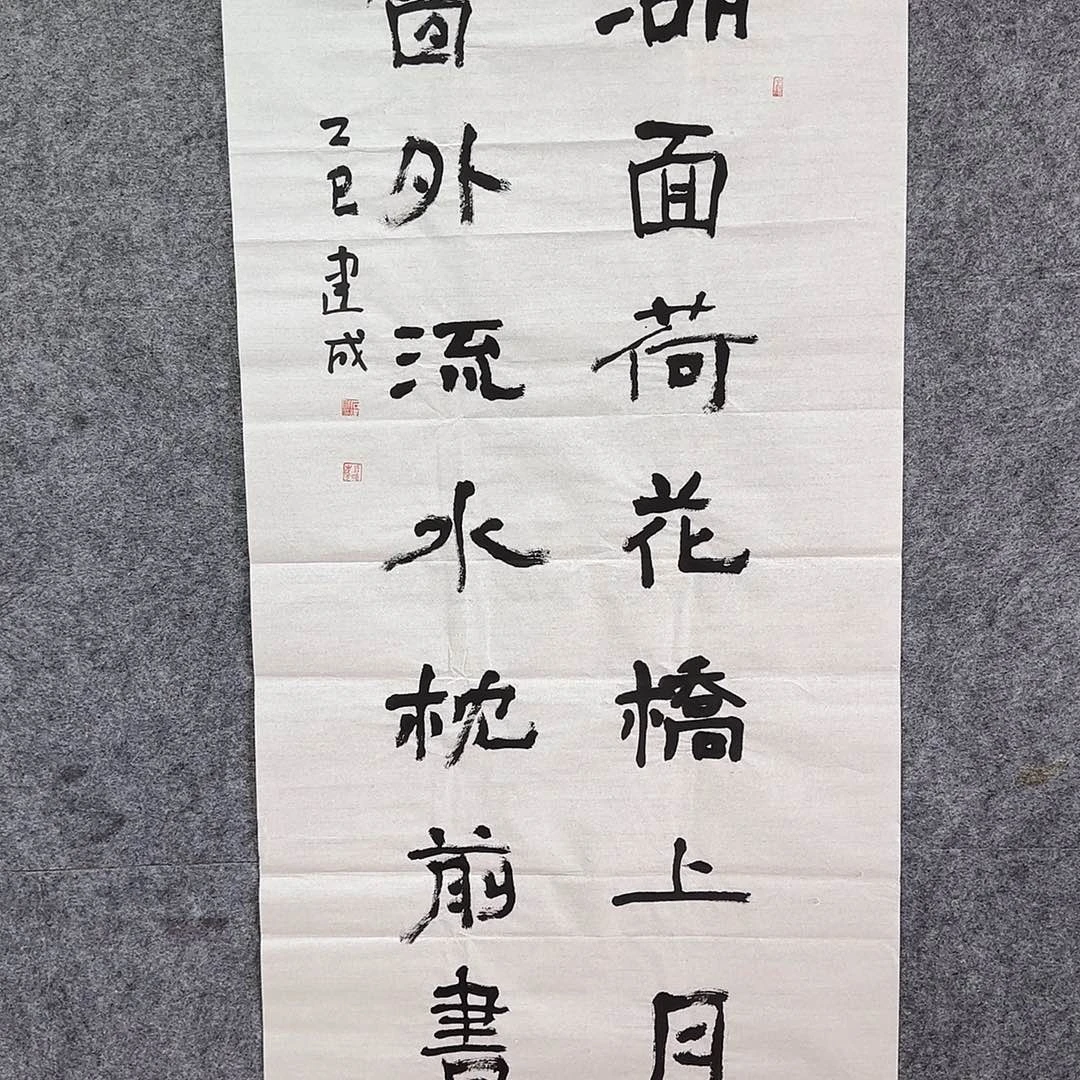 湖面荷花橋上月
窗外流水枕前書
乙巳建成